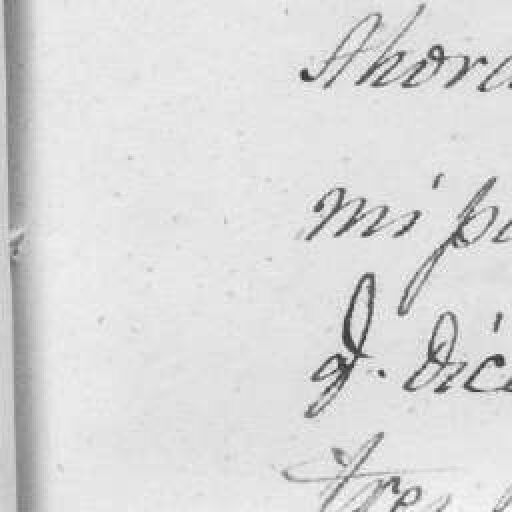 Ahora
mi pa
q. dice
tres